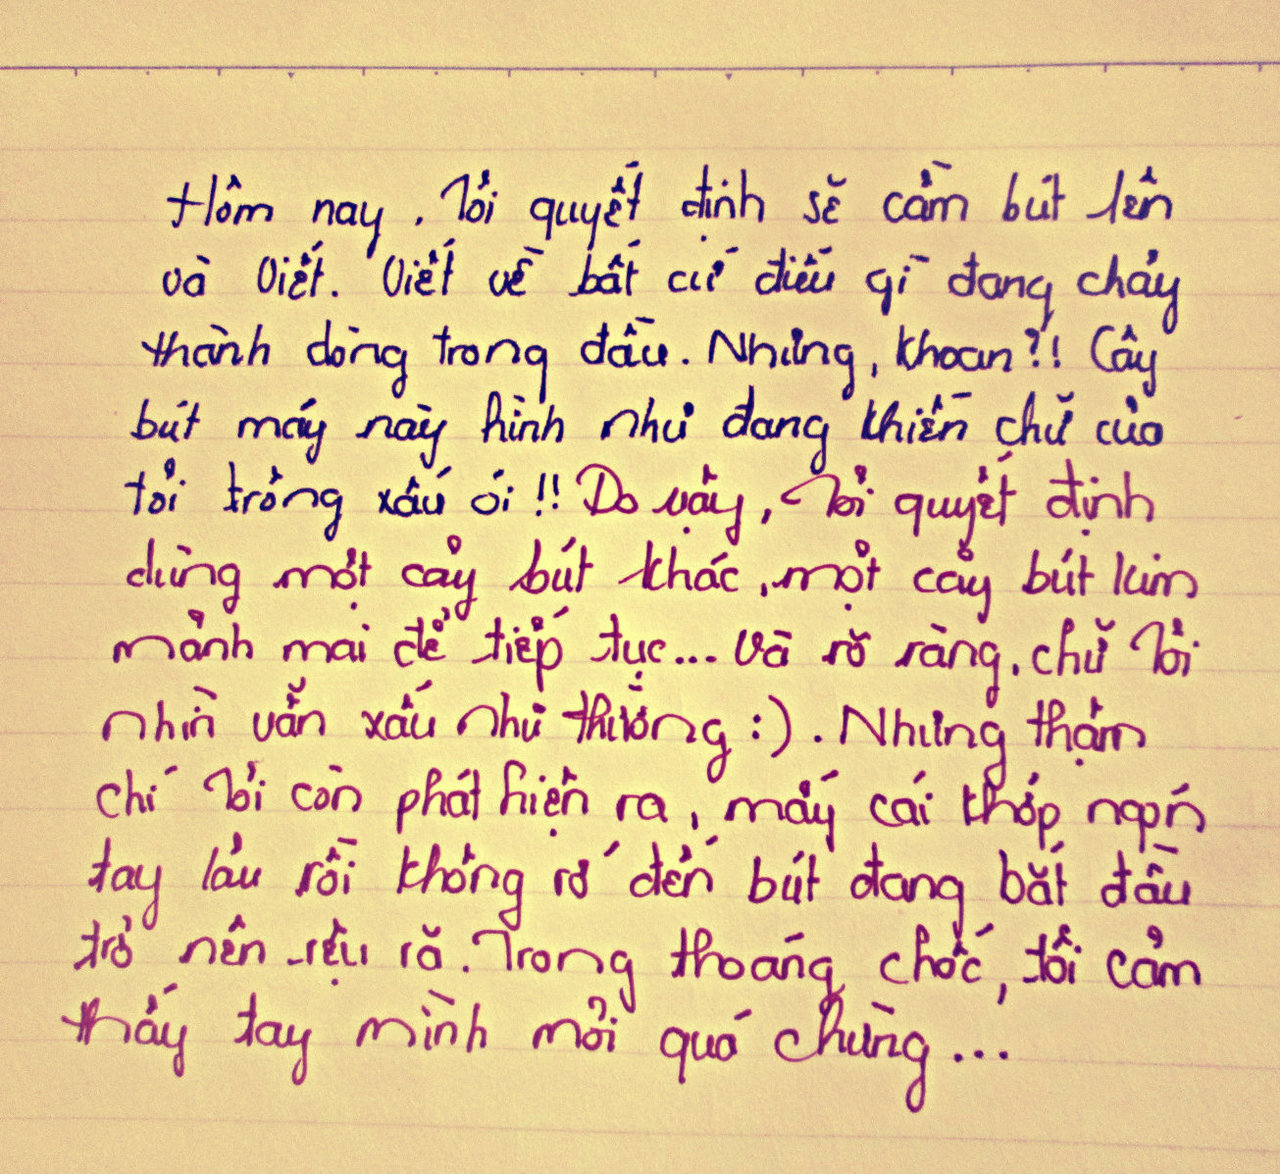 Hôm nay, Tôi quyết định sẽ cầm bút lên
và viết. Viết về bất cứ điều gì đang chảy
thành dòng trong đầu. Nhưng, khoan?! Cây
bút máy này hình như đang khiến chữ của
tôi trông xấu ói!! Do vậy, Tôi quyết định
dùng một cây bút khác, một cây bút kim
mảnh mai để tiếp tục... Và rõ ràng, chữ Tôi
nhìn vẫn xấu như thường :). Nhưng thậm
chí Tôi còn phát hiện ra, mấy cái khớp ngón
tay lâu rồi không rớ đến bút đang bắt đầu
trở nên rệu rã. Trong thoáng chốc, tôi cảm
thấy tay mình mỏi quá chừng...